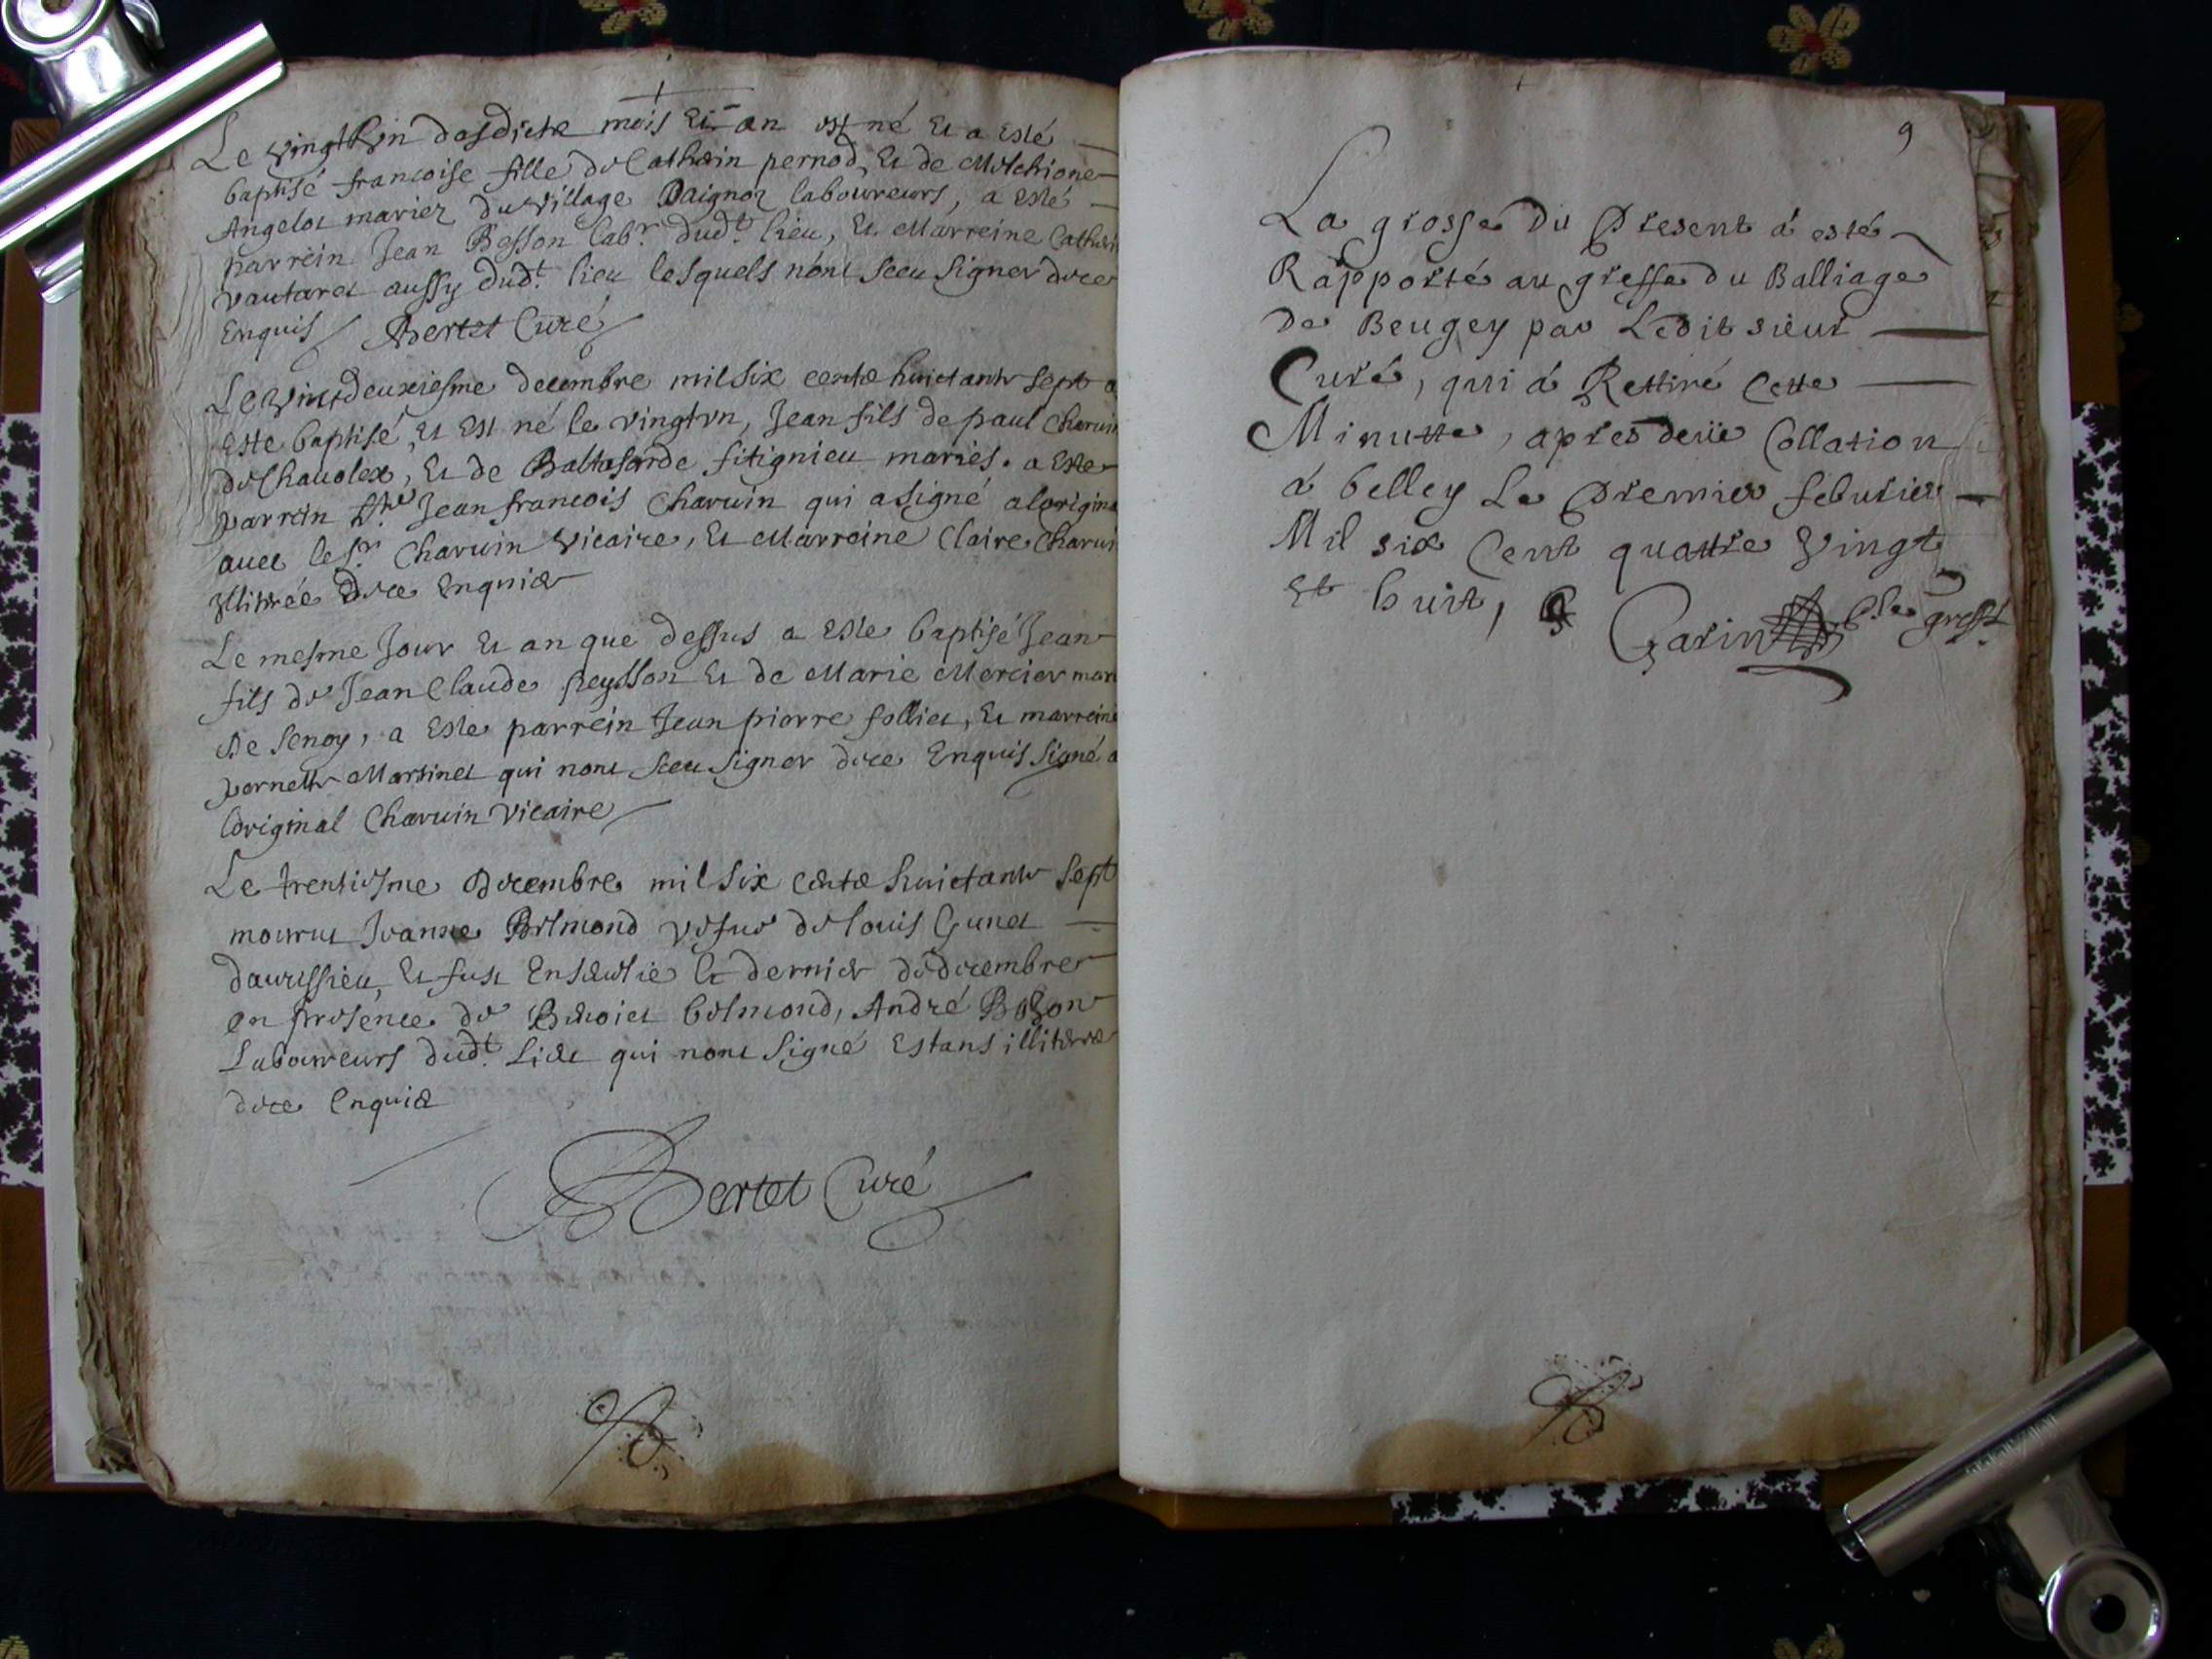 Le vingt vn desdicte mois Et an est né Et a Esté
baptisé francoise fille de Cathein pernod, Et de Melchione
Angelot mariez du village Daignoz laboureurs, a Esté
parrein Jean Besson labr. dudt. lieu, Et Marreine Catheri
vautaret aussy dudt. lieu lesquels nont sceu signer de ce
Enquis Bertet Curé
Le vintdeuxiesme decembre mil six cents huictante sept a
Este baptisé, Et Est né le vingtvn, Jean fils de paul Charuin
de Chauolex, Et de Baltasarde fitignieu mariés. a Este
parrein Jean francois Charuin qui a signé a lorigina
auec le Sr. Charuin Vicaire, Et Marreine Claire Charui
Illitrée De ce Enquise
Le mesme Jour Et an que dessus a Este baptisé Jean
fils de Jean Claude peysson Et de Marie Mercier mari
De Senoy, a Este parrein Jean pierre folliet, Et marreine
pernette Martinet qui nont sceu signer de ce Enquis signé a
Loriginal Charuin Vicaire
Le trentiesme Decembre mil six cents huictante sept
mourut Jeanne Belmond vefue de louis Gunet
daurissieu, Et fust Enseuelie le dernier de decembre
en presence de Benoict belmond, André Bozon
Laboureurs dudt. Lieu qui nont signé Estans illiteres
de ce Enquis
Bertet Curé
9
La grosse du Present á esté
Rapporté au greffe du Balliage
de Beugey par Ledit sieur
Curé, qui á Rettiré Cette
Minutte, apres deüe Collation
á belley Le Premier feburier
Mil six Cent quattre Vingt
Et huit,
Garin greff.